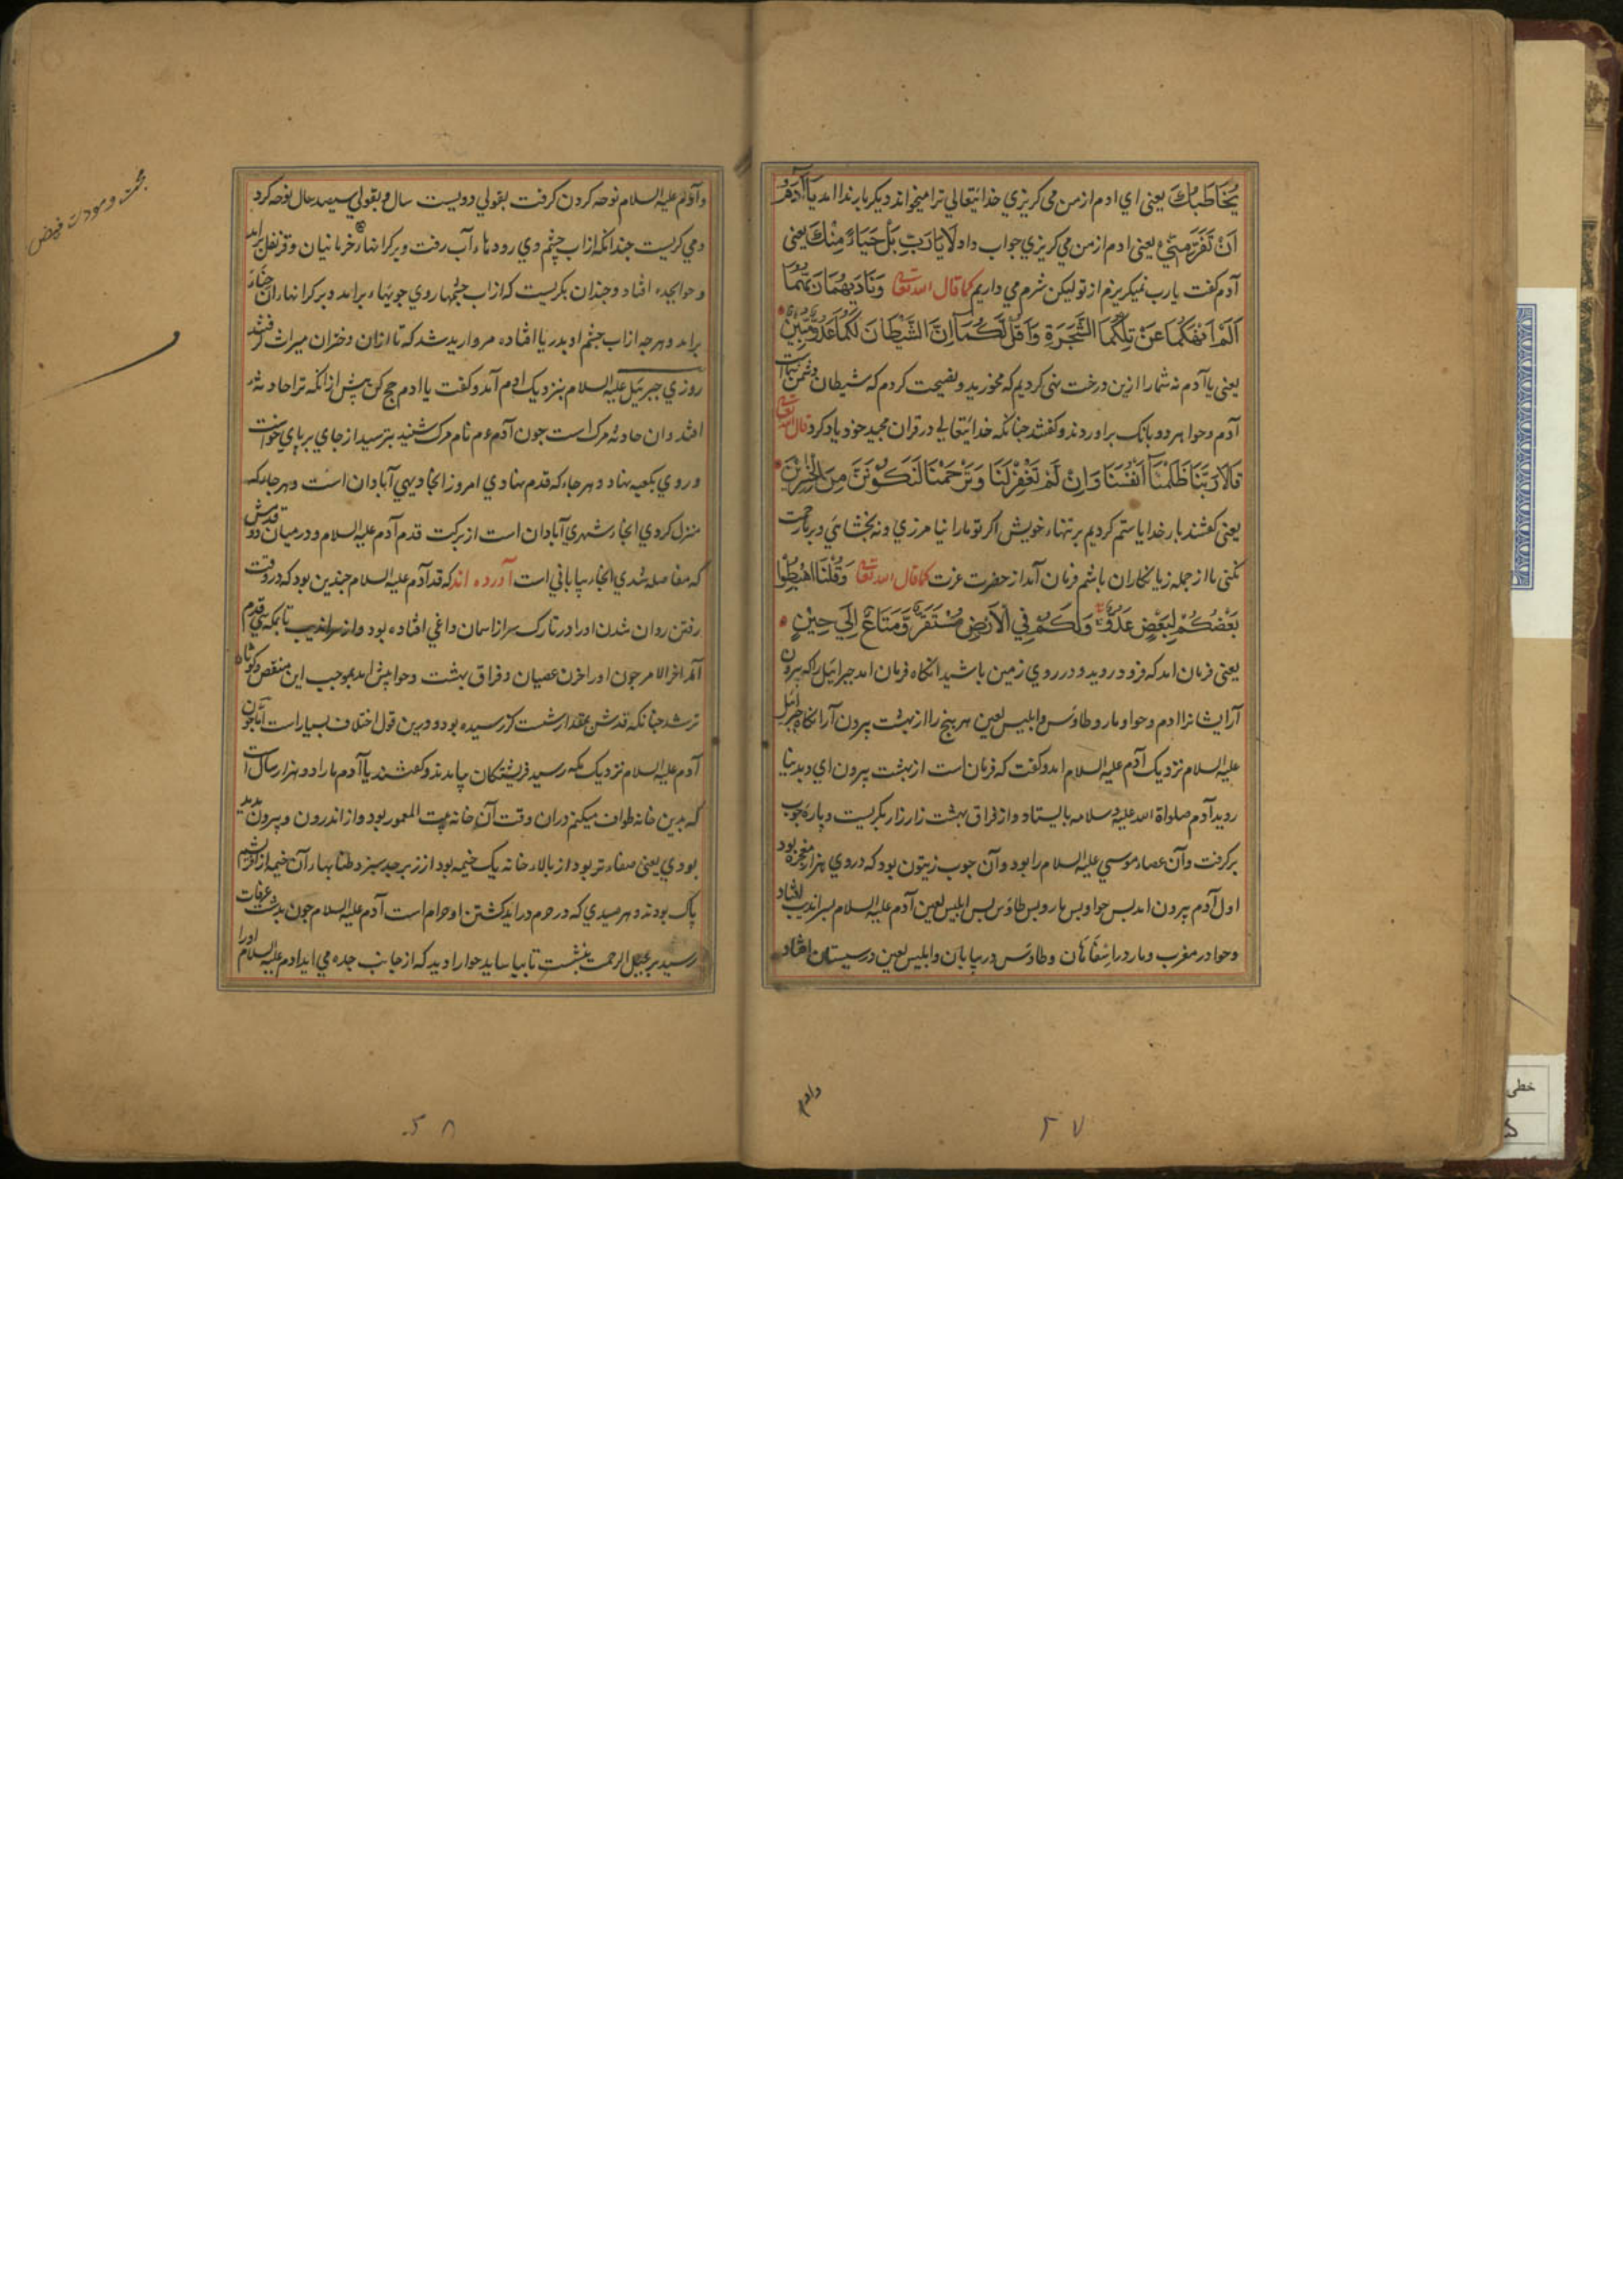 يُخَاطِبُكَ يعنى اي ادم از من مى كريزي خدايتعالي ترا ميخواند ديكر باره ندا امد يَا آدَمُ
اَنْ تَفِرَّ مِنّي يعنى ادم از من مي كريزي جواب داد لَا يَا رَبِّ بَلْ حَيَاءً مِنْكَ يعنى
آدم كفت يارب نميكريزم از تو ليكن شرم مي داريم كما قال الله تعالي وَنَادَيهُمَا رَبُّهُمَا
اَلَمْ اَنْهَكُمَا عَنْ تِلْكُمَا الشَّجَرَةِ وَاَقُلْ لَكُمَا اِنَّ الشَّيْطَانَ لَكُمَا عَدُوٌّ مُبِيْنٌ
يعنى يا آدم نه شمارا ازين درخت نهى كرديم كه مخوريد و نصيحت كردم كه شيطان دشمن شماست
آدم و حوا هر دو بانك براوردند و كفتند جنانكه خدايتعالي در قران مجيد خود ياد كرد قال الله تعالي
قَالَا رَبَّنَا ظَلَمْنَا اَنْفُسَنَا وَاِنْ لَمْ تَغْفِرْ لَنَا وَتَرْحَمْنَا لَنَكُوْنَنَّ مِنَ الْخٰسِرِيْنَ
يعنى كفتند بار خدايا ستم كرديم بر تنهاء خويش اكر تو مارا نيامرزي و نه بخشائي و بر ما رحمت
نكنى ما از جمله زيانكاران باشم فرمان آمد از حضرت عزت كما قال الله تعالي وَقُلْنَا اهْبِطُوْا
بَعْضُكُمْ لِبَعْضٍ عَدُوٌّ وَلَكُمْ فِي الْاَرْضِ مُسْتَقَرٌّ وَمَتَاعٌ اِلَي حِيْنٍ
يعنى فرمان امد كه فرود رويد و در روي زمين باشيد انكاه فرمان امد جبرائيل را كه بيرون
آر ايشانرا ادم و حوا و مار و طاوس و ابليس لعين هر پنج را از بهشت بيرون آر انكاه جبرائيل
عليه السلام نزديك آدم عليه السلام امد و كفت كه فرمان است از بهشت بيرون اي و بدنيا
رويد آدم صلواة الله عليه و سلامه بايستاد و از فراق بهشت زار زار بكريست و پاره جوب
بركرفت و آن عصاء موسي عليه السلام را بود و آن جوب زيتون بود كه دروي هزار معجزه بود
اول آدم بيرون امد بس حوا و بس مار و بس طاوس بس ابليس لعين آدم عليه السلام بسرانديب افتاد
و حوا در مغرب و مار در اسفاهان و طاوس در بيابان و ابليس لعين در سيستان افتاد
وادم
٢٧
و آدم عليه السلام نوحه كردن كرفت بقولي دويست سال و بقولي سيصد سال نوحه كرد
و مي كريست جندانكه از آب چشم وي رودهاء آب رفت و بر كرانهاء خرمانيان و قرنفل برامد
و حوا بجده افتاد و جندان بكريست كه از اب چشمهاروي جويهاء برامد و بر كرانهاء ان حناء
برامد و هر جه از اب چشم او بدريا افتاده مرواريد شد كه تا ازان دختران ميراث كرفتند
روزي جبرئيل عليه السلام بنزديك ادم آمد و كفت يا ادم حج كن پيش از انكه ترا حادثه
افتد و ان حادثه مرك است جون آدم نام مرك شنيد بترسيد از جاي بر پاي خواست
و روي بكعبه نهاد و هر جاء كه قدم نهادي امروز انجا ديهي آبادان است و هر جاء كه
منزل كردي انجا شهري آبادان است از بركت قدم آدم عليه السلام و در ميان دو قدمش
كه مفاصله شدي انجا بياباني است آورده اند كه قد آدم عليه السلام جندين بود كه در وقت
رفتن روان شدن او را در تارك سر از اسمان داغي افتاده بود و از سرانديب تا بمكه قدم
آمد اخر الامر جون او را حزن عصيان و فراق بهشت و حوا پيش امد بموجب اين منغص كوتاه
تر شد جنانكه قدش بمقدار شصت كز رسيده بود و درين قول اختلاف بسيار است اما جون
آدم عليه السلام نزديك مكه رسيد فريشتكان بيامدند و كفتند يا آدم مارا دو هزار سال است
كه بدين خانه طواف ميكنم دران وقت آن خانه بيت المعمور بود و از اندرون و بيرون پديد
بودي يعنى صفاءتر بود از بالاء خانه يك خيمه بود از زبرجد سبز و طنابهاء آن خيمه از
پاك بودند و هر صيدي كه در حرم درايد كشتن او حرام است آدم عليه السلام جون بدشت عرفات
رسيد بر جبل الرحمت بنشست تا بياسايد حوا را ديد كه از جانب جده مي ايد ادم عليه السلام اورا
٢٨
خطى